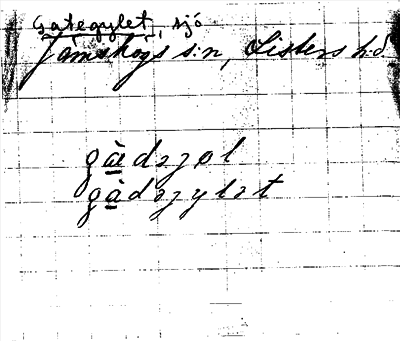 Gategylet, sjö
Jämshögs s:n, Listers h:d.
gàdəgøl
gàdəgylət